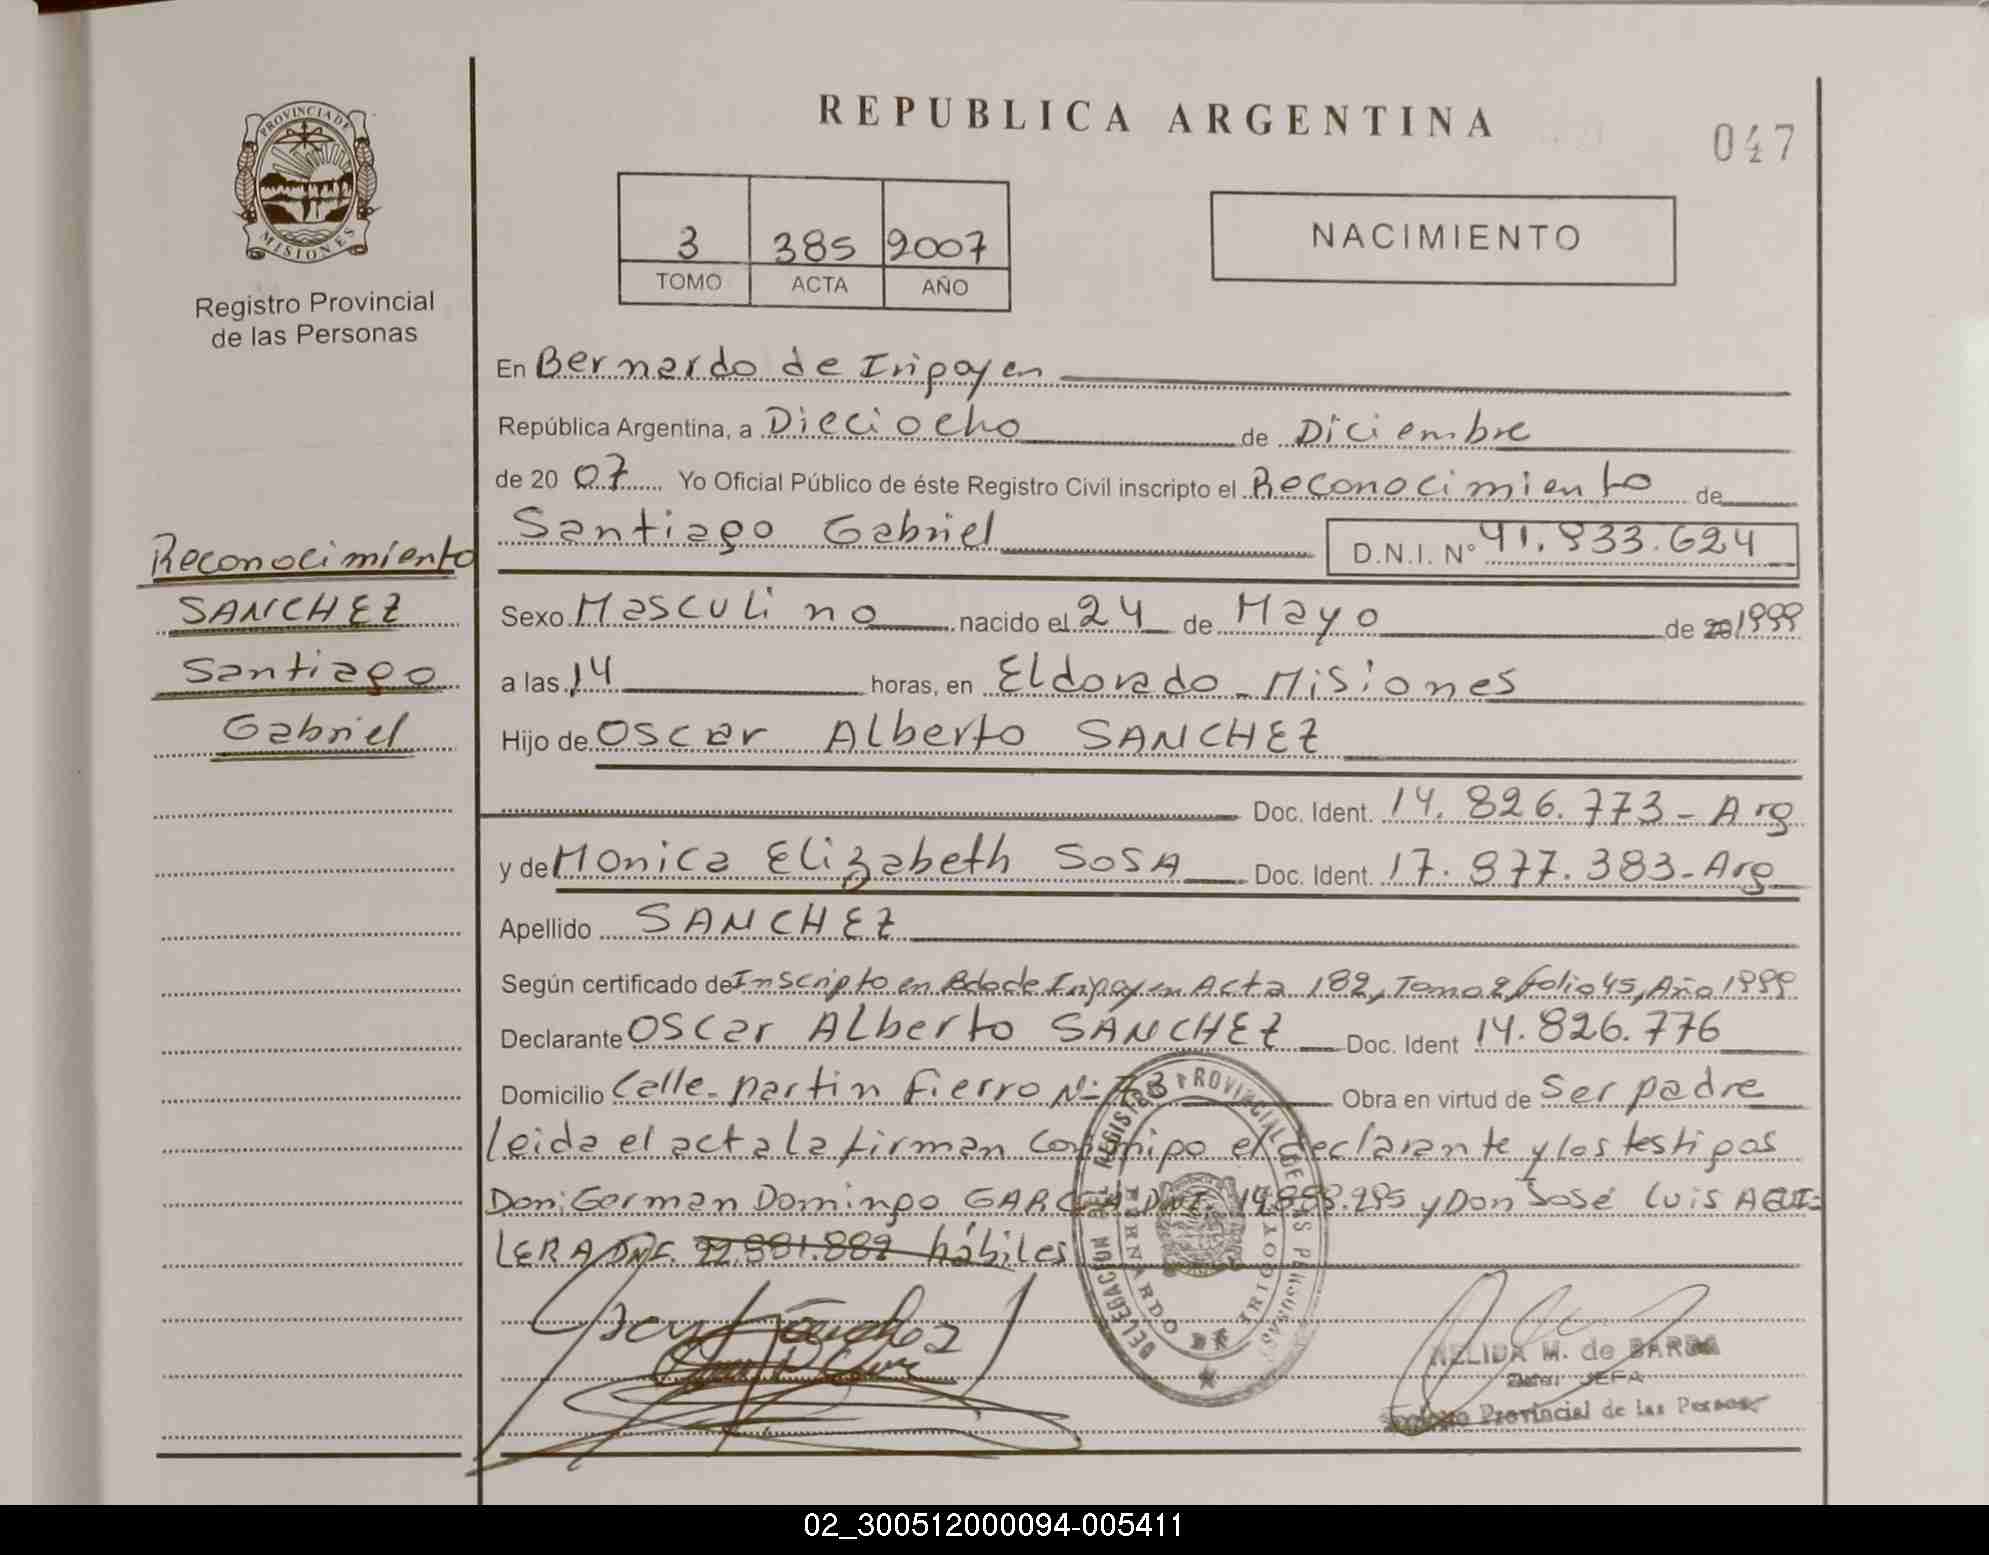 PROVINCIA DE
MISIONES
Registro Provincial
de las Personas
REPUBLICA ARGENTINA
047
3 385 2007
TOMO ACTA AÑO
NACIMIENTO
En Bernardo de Irigoyen
República Argentina, a Dieciocho de Diciembre
de 20 07 Yo Oficial Público de éste Registro Civil inscripto el Reconocimiento de
Santiago Gabriel D.N.I. Nº 41.833.624
Reconocimiento
SANCHEZ
Santiago
Gabriel
Sexo Masculino nacido el 24 de Mayo de 1999
a las 14 horas, en Eldorado - Misiones
Hijo de Oscar Alberto SANCHEZ
Doc. Ident. 14.826.773 - Arg
y de Monica Elizabeth SOSA Doc. Ident. 17.877.383 - Arg
Apellido SANCHEZ
Según certificado de Inscripto en Bdo de Irigoyen Acta 182, Tomo 2, folio 45, Año 1999
Declarante Oscar Alberto SANCHEZ Doc. Ident 14.826.776
Domicilio Calle - Martin Fierro Nº Obra en virtud de Ser padre
leida el acta la firman conmigo el declarante y los testigos
Don: German Domingo GARCIA DNI. y Don José Luis AGUI=
LERA DNI. 22.981.882 hábiles
DELEGACION DEL REGISTRO PROVINCIAL DE LAS PERSONAS
BERNARDO DE IRIGOYEN
NELIDA M. de
JEFA
Provincial de las Personas
02_300512000094-005411